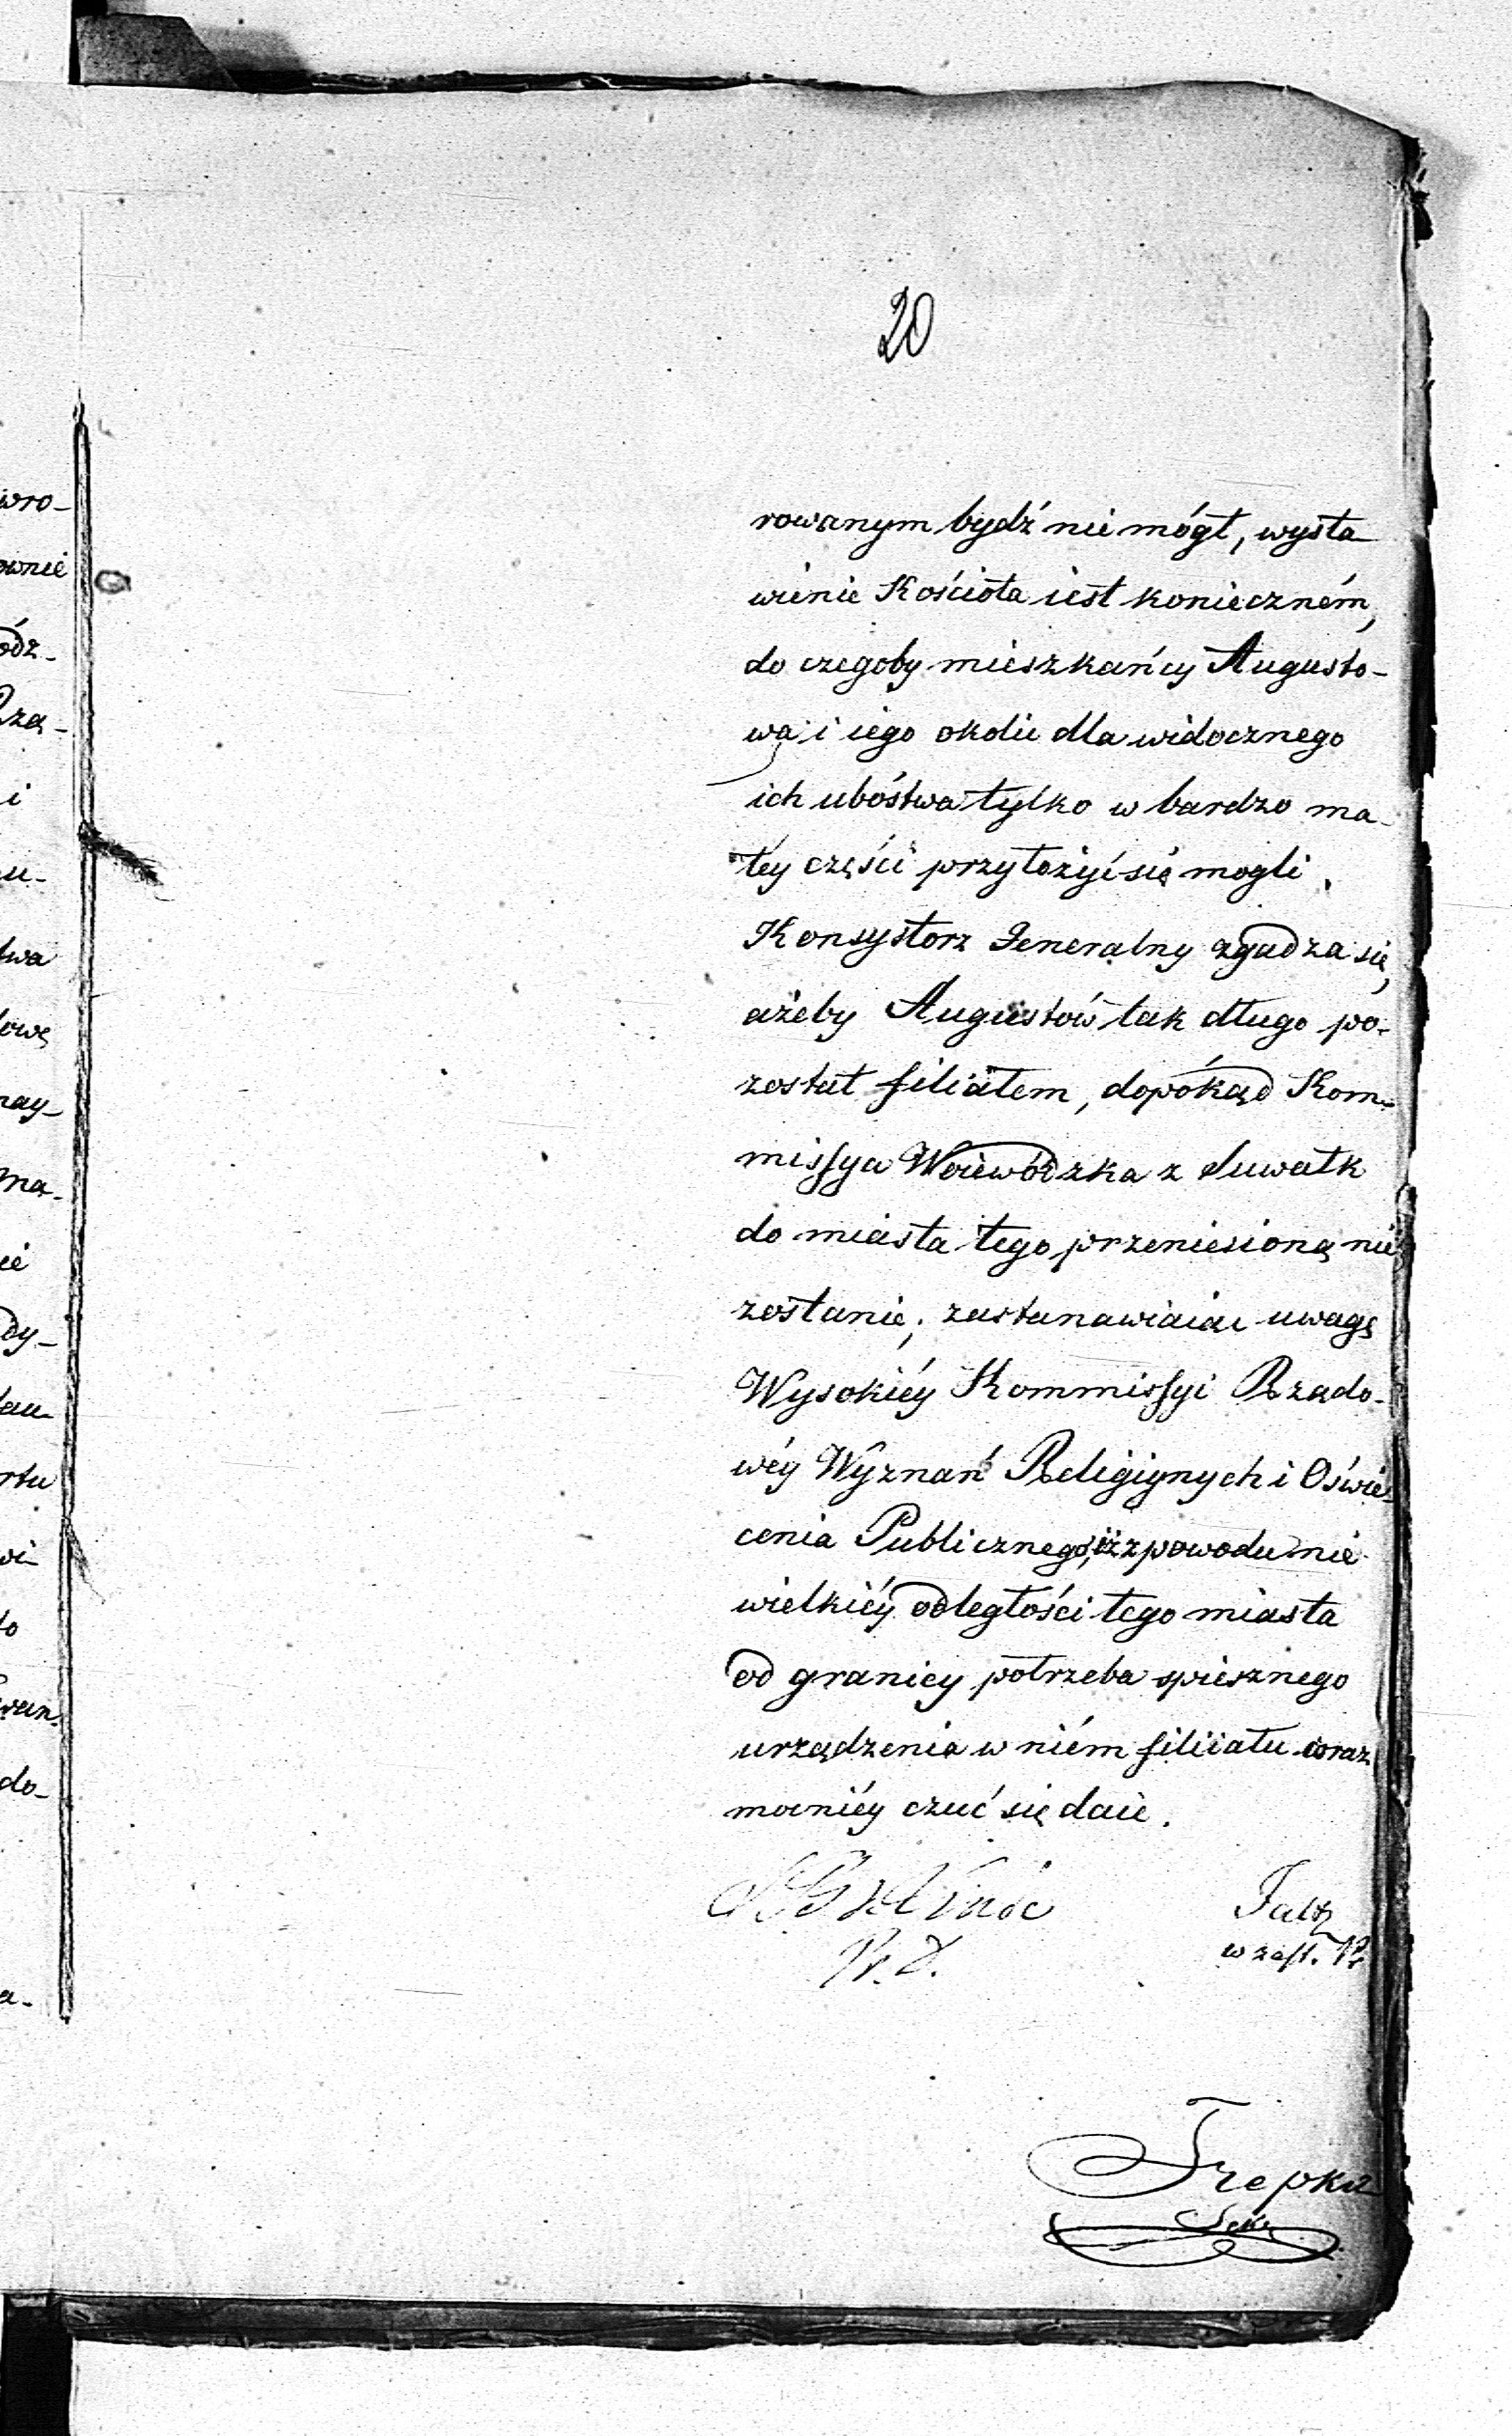 20
wro-
ownie
ódz-
Rzą-
i
u-
twa
towę
nay-
ma-
ie
dy-
tau-
rtu
wi-
to
wan.
do-
a-
rowanym bydź nie mógł, wysta-
wienie Kościoła iest konieczném,
do czegoby mieszkańcy Augusto-
wa i iego okolic dla widocznego
ich ubóstwa tylko w bardzo ma-
łéy części przyłożyć się mogli.
Konsystorz Jeneralny zgadza się,
ażeby Augustów tak długo po-
został filiałem, dopókąd Kom-
missya Woiewódzka z Suwałk
do miasta tego przeniesioną nie
zostanie; zastanawiaiąc uwagę
Wysokiéy Kommissyi Rządo-
wéy Wyznań Religiynych i Oświe-
cenia Publicznego, iż z powodu nie-
wielkiéy odległości tego miasta
od granicy potrzeba spiesznego
urządzenia w niém filiiału coraz
mocniéy czuć się daie.
Faltz
w zast. P.
Trepka
Sekr